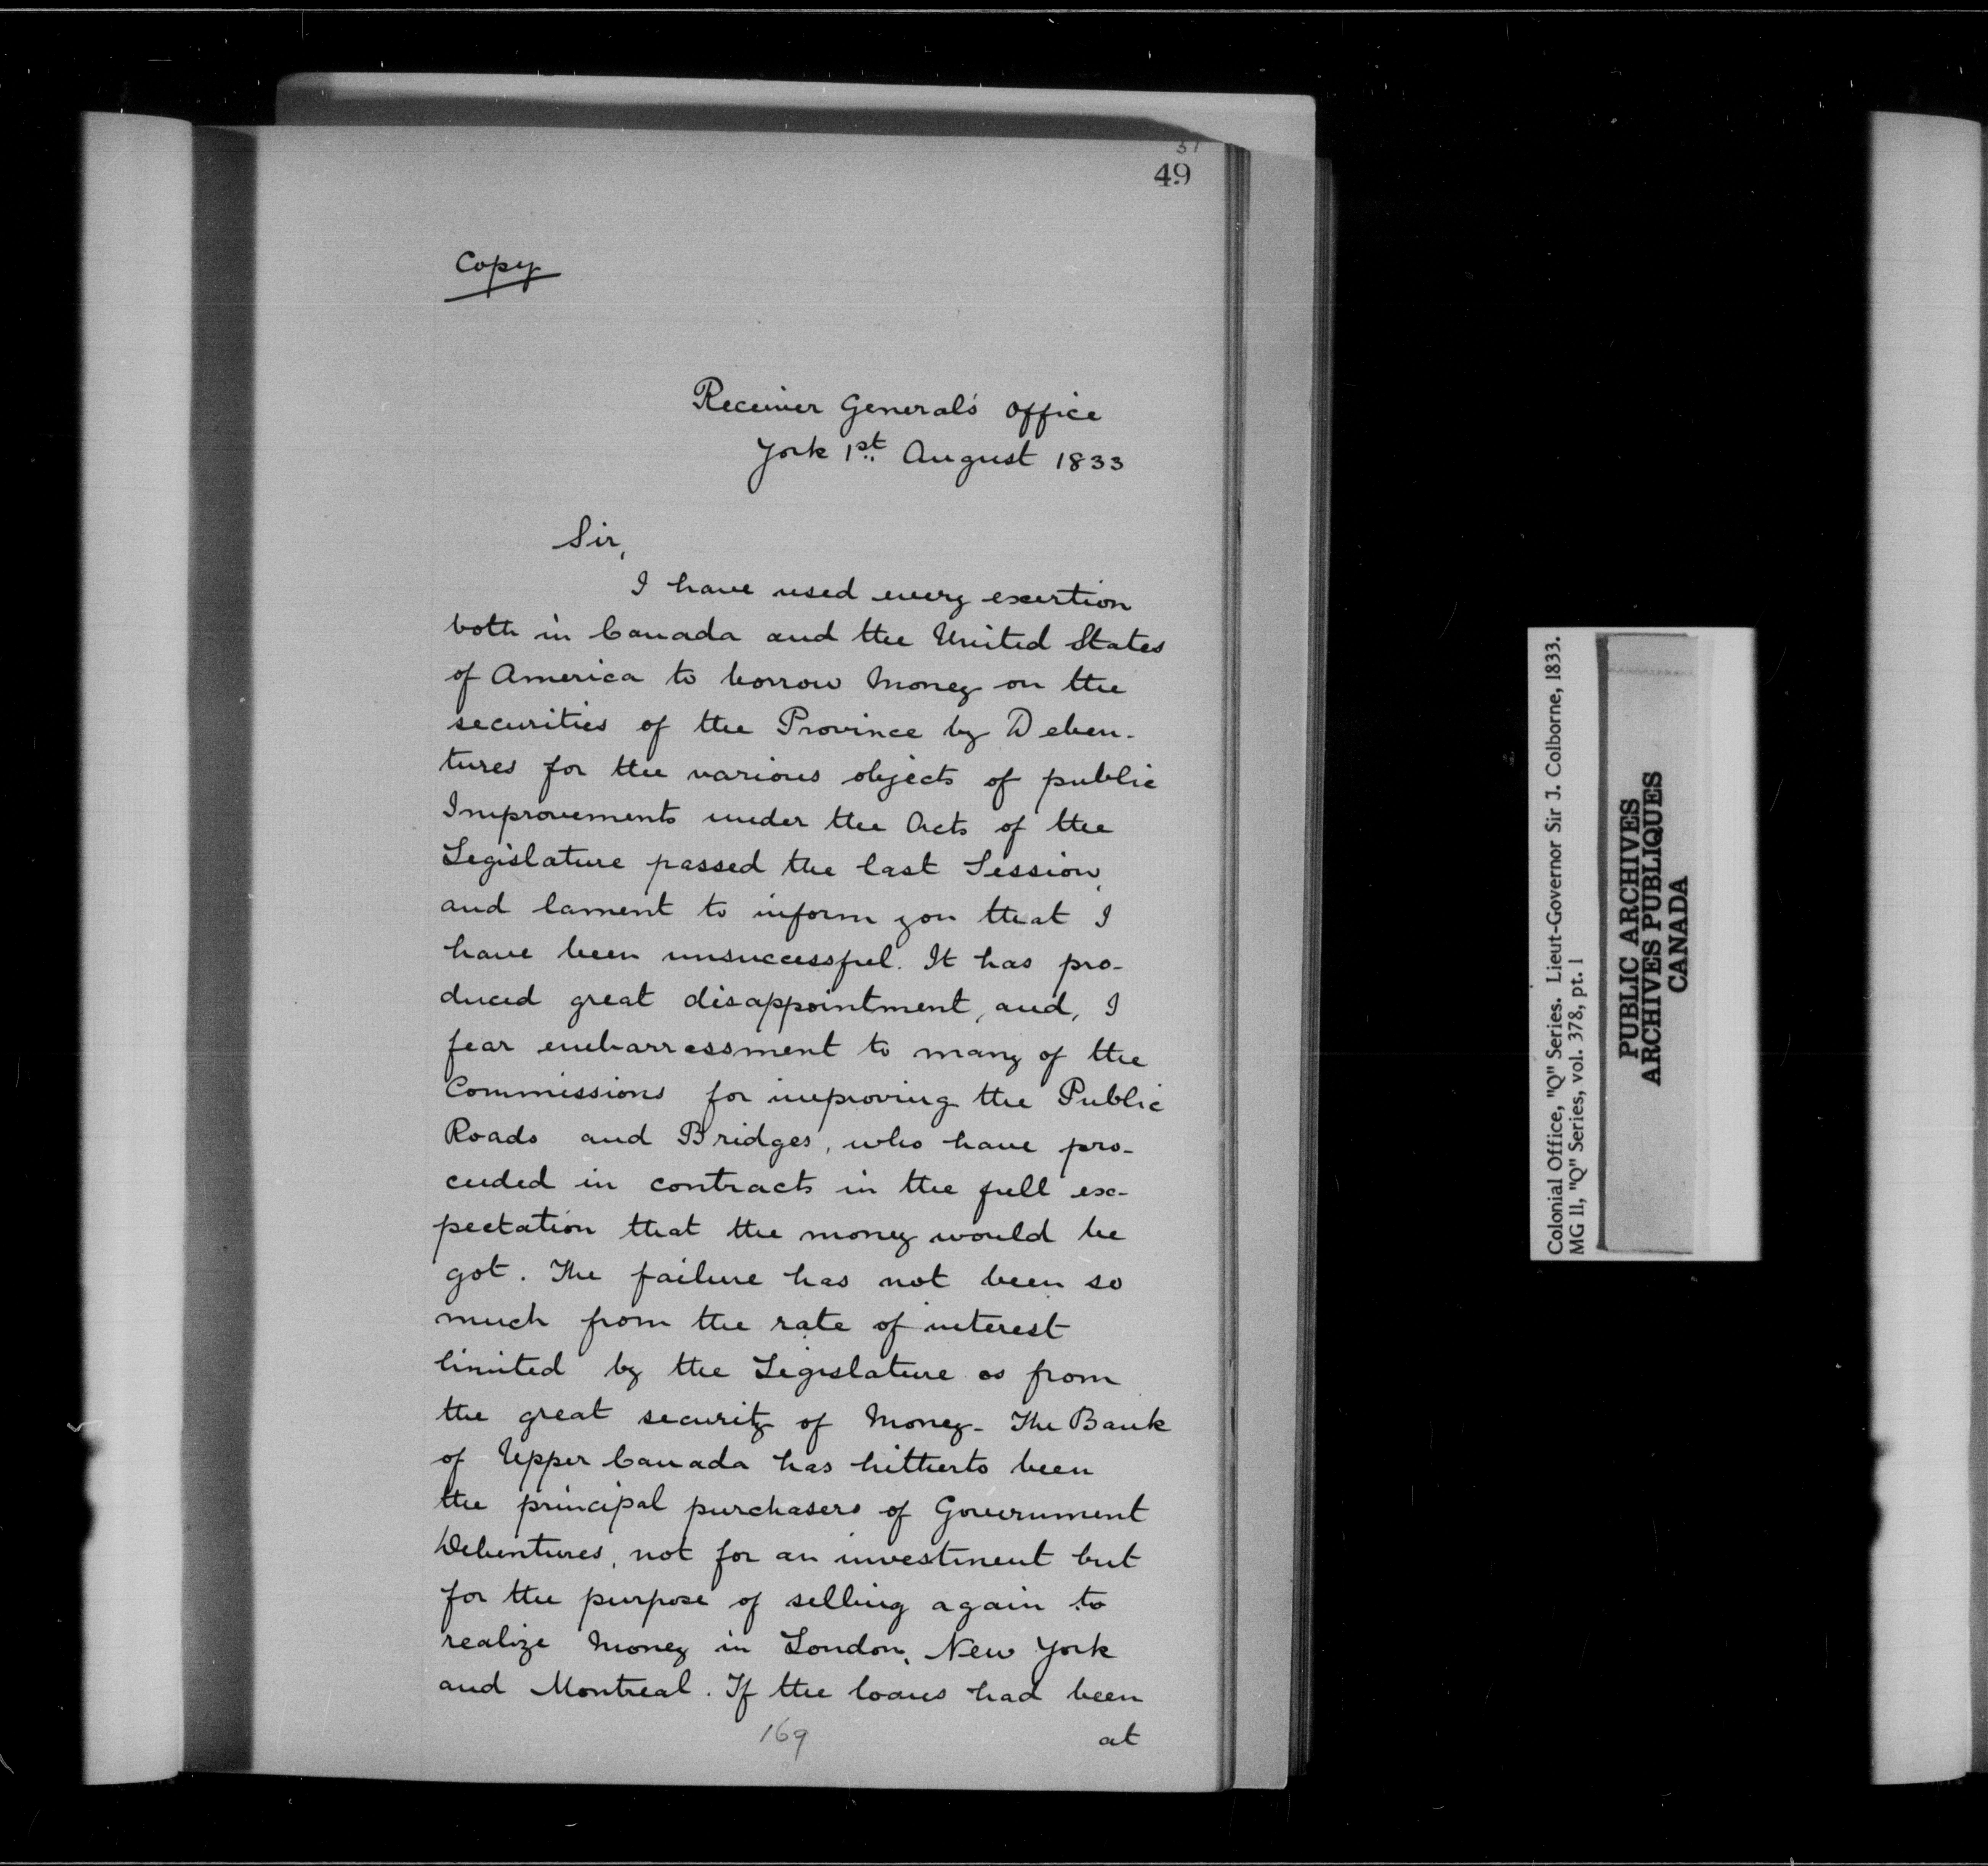 51
49
Copy
Receiver General's Office
York 1st August 1833
Sir,
I have used every exertion
both in Canada and the United States
of America to borrow Money on the
securities of the Province by Deben-
tures for the various objects of public
Improvements under the Acts of the
Legislature passed the last Session,
and lament to inform you that I
have been unsuccessful. It has pro-
duced great disappointment, and, I
fear embarressment to many of the
Commissions for improving the Public
Roads and Bridges, who have pro-
ceeded in contracts in the full ex-
pectation that the money would be
got. The failure has not been so
much from the rate of interest
limited by the Legislature as from
the great security of Money - The Bank
of Upper Canada has hitherto been
the principal purchasers of Government
Debentures, not for an investment but
for the purpose of selling again to
realize Money in London, New York
and Montreal. If the loans had been
169
at
Colonial Office, "Q" Series. Lieut-Governor Sir J. Colborne, 1833.
MG 11, "Q" Series, vol. 378, pt. 1
PUBLIC ARCHIVES
ARCHIVES PUBLIQUES
CANADA